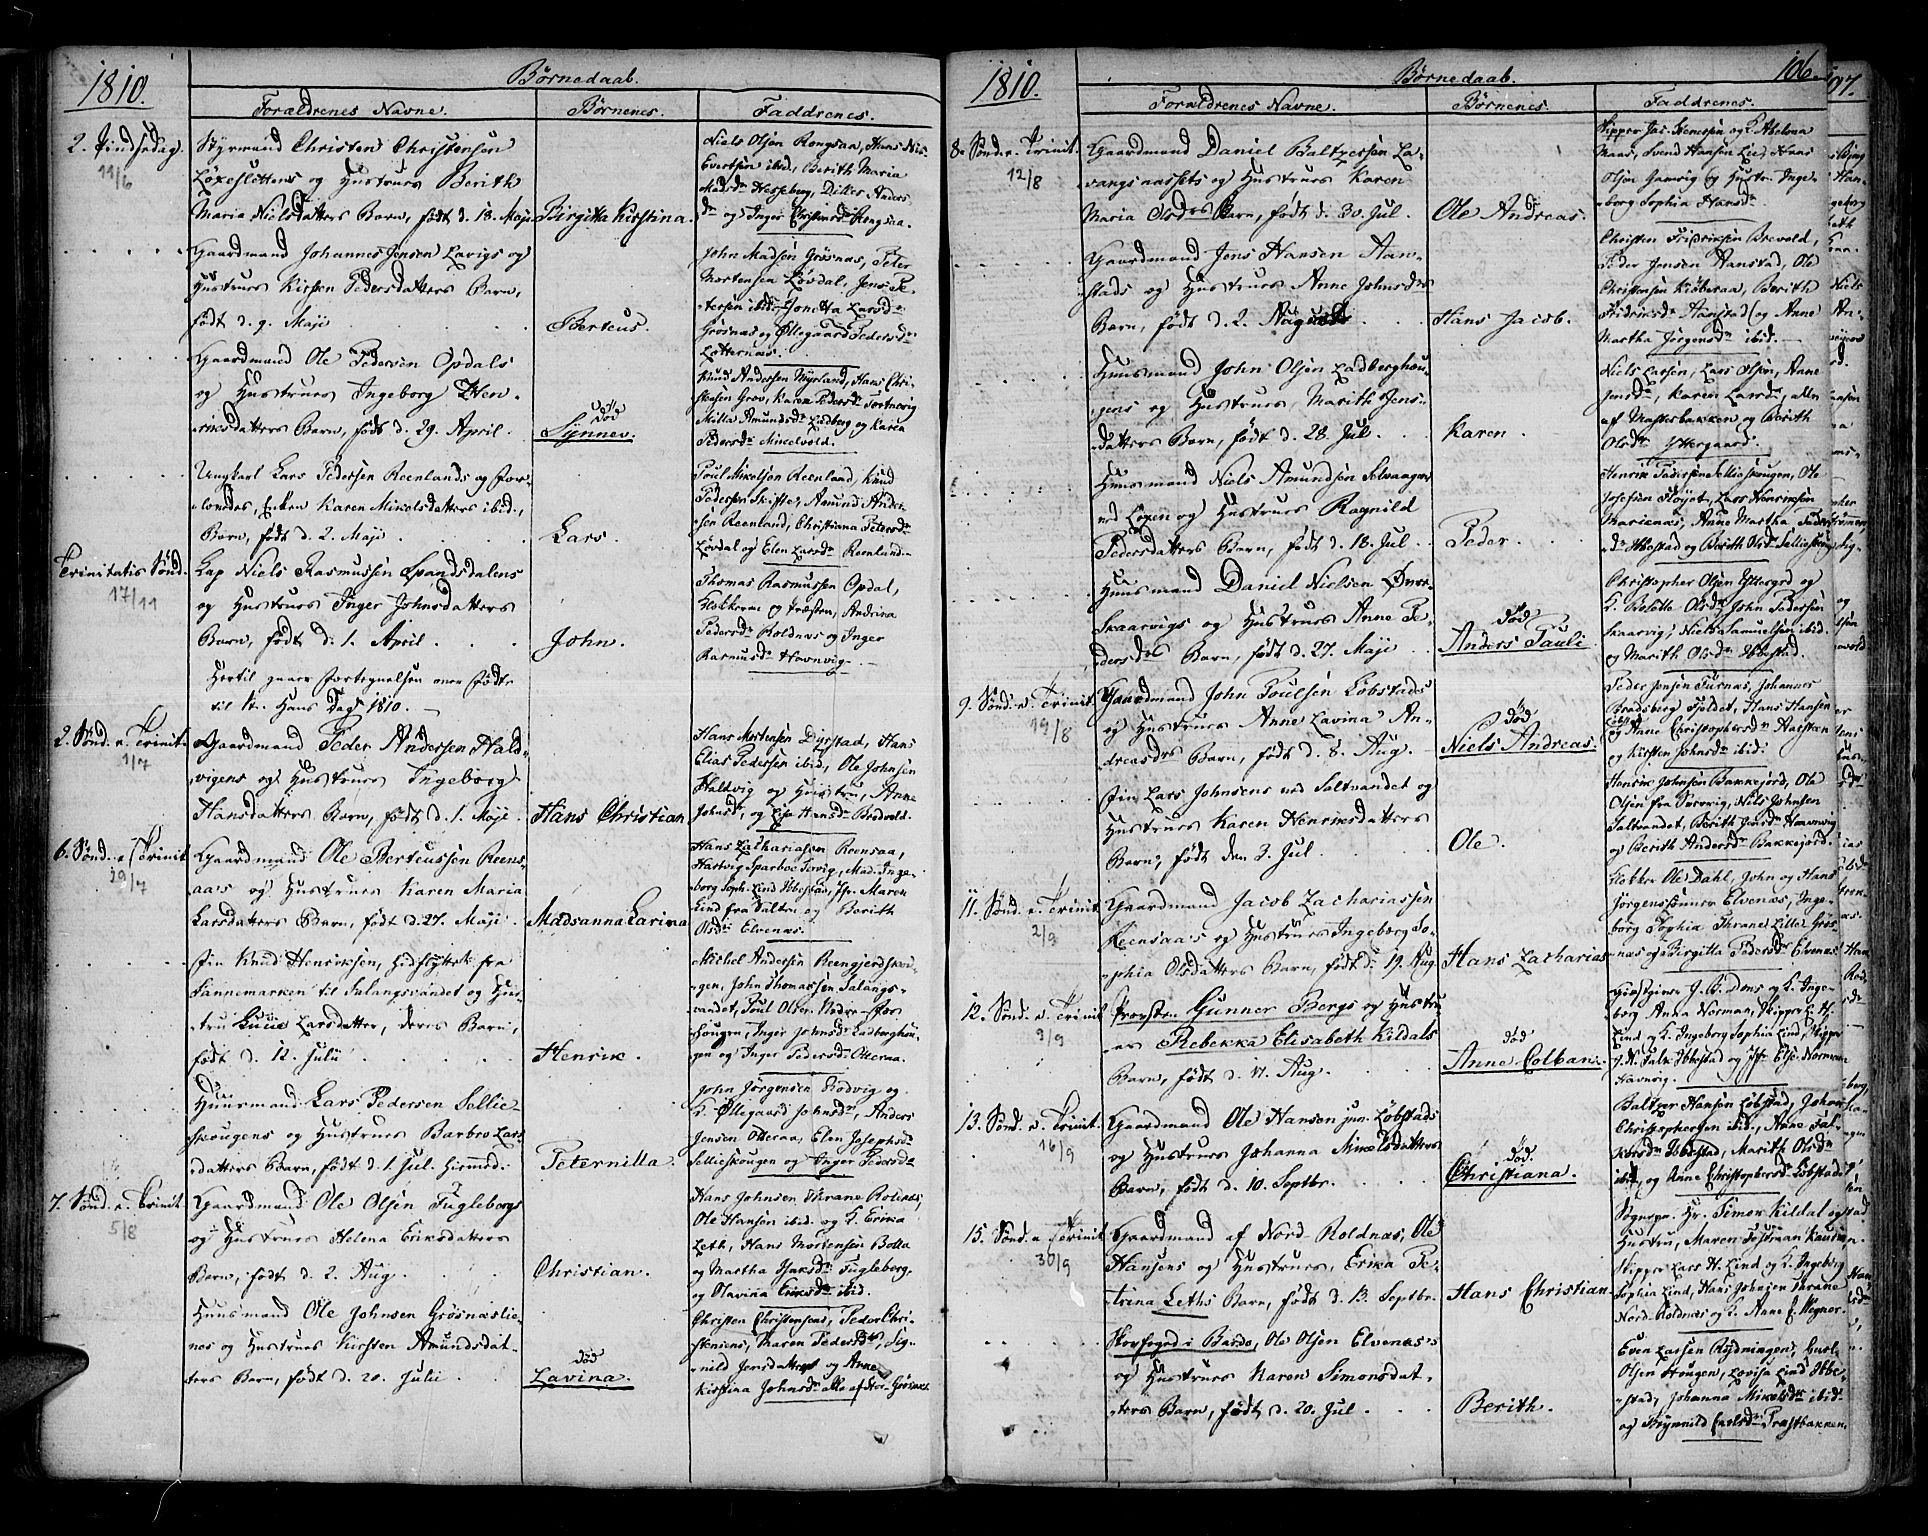 1810.
Børnedaab.
Forældrenes Navne.
Børnenes.
Faddrenes.
2. Pindsedag.
11/6
Styrmand Christen Christensen
Løxeslettens og Hustrues Berith
Maria Nielsdatters Barn, født d. 18. Maji
Birgitta Kirstina.
Niels Olsen Rongsaa, Hans Nils-
Evertsen ibid, Berith Maria
Madsdr Hesseberg, Anders
dr og Inger Christiansdr Rongsaa.
Gaardmand Johannes Jensen Lavigs og
Hustrues Kirsten Pedersdatters Barn,
født d. 9. Maji
Berteus.
John Madsen Grøsnæs, Peter
Mortensen Løvdal, Jens Pe-
tersen ibid. Jonetta Larsdr
Grøsnæs og Ollegaard Pedersdr
Gaardmand Ole Pedersen Opdals
og Hustrues Ingeborg Hen-
riksdatters Barn, født d. 29. April.
død
Synnev.
Knud Andersen Nyrland, Hans Chri-
stensen Grov, Karen Pedersdr
Amundsdr Lidberg og Karen
Pedersdr Mikelvold.
Ungkarl Lars Pedersen Reenlands og For-
lovedes, Enken Karen Mikelsdatters ibid.,
Barn, født d. 2. Maji
Lars.
Poul Mikelsen Reenland, Knud
Pedersen Skifte, Amund Ander-
sen Reenland, Christiana Petersdr
Løvdal og Elen Larsdr Reenland.
Trinitatis Sønd.
17/11
Lap Niels Rasmussen Spandsdalens
og Hustrues Inger Johnsdatters
Barn, født d. 1. April.
John.
Thomas Rasmussen Opdal,
Klokkeren og Andrina
Pedersdr Roldnæs og Inger
Rasmusdr Havnvig.
Hertil gaaer Fortegnelsen over Fødte
til St. Hans Dag 1810.
2. Sønd. e. Trinit.
1/7
Gaardmand Peder Andersen Hald-
vigens og Hustrues Ingeborg
Hansdatters Barn, født d. 1. Maji.
Hans Christian
Hans Mortensen Dyrstad, Hans
Elias Pedersen ibid, Ole Johnsen
Haldvig og Hustru, Anne
Johnsdr, og Lisa Hansdr Bredvold.
6. Sønd. e. Trinit.
29/7
Gaardmand Ole Berteussen Reens-
aa's og Hustrues Karen Maria
Larsdatters Barn, født d. 27. Maji.
Madsanna Larina
Hans Zachariasen Reensaa,
Hartvig Sparboe Mad. Inge-
borg Soph. Lind Ibbestad, Jfr. Maren
Lind fra Salten og Berith
Olsdr Elvenæs.
Fin Knud Henriksen, fra
Tannemarken til Salangsvandet og Hus-
tru Larsdatter, deres Barn,
født d. 12. Julii
Henrik.
Michel Andersen Reengjerdskou-
gen, John Thomassen, Salangs-
vandet, Poul Olsen Nedre-For-
hougen, Inger Johnsdr Ladberghou-
gen og Inger Pedersdr Otteraa.
Huusmand Lars Pedersen Sellie-
skougens og Hustrues Barbro Lars
datters Barn, født d. 1. Jul. hiemmed.
Peternilla.
John Jørgensen Rodvig og
K. Ollegaard Johnsdr, Anders
Jensen Otteraa, Elen Josephsdr
Sellieskougen og Inger Pedersdr
7. Sønd. e. Trinit.
5/8
Gaardmand Ole Olsen Fugleborgs
og Hustrues Helena Eriksdatters
Barn, født d. 2. Aug.
Christian.
Hans Johnsen Thrane Rolnæs,
Ole Hansen ibid. og K. Erika
Leth, Hans Mortensen Bolla
og Martha Isaksdr Fugleberg,
og Olavina Eriksdr ibid.
Huusmand Ole Johnsen Grøsnæslie-
nes og Hustrues Kirsten Amundsdat-
ters Barn, født d. 20. Julii
død
Lavina.
Christen Christensens, Peder Chri-
stensens, Maren Pedersdr, Sig-
nild Jensdatters og Anne
Kirstina Johnsdr alle af Stor-Grøsnæs
1810.
Børnedaab.
106.
Forældrenes Navne.
Børnenes.
Faddrenes.
8. Sønd. e. Trinit.
12/8
Gaardmand Daniel Baltzersen La-
vangsnæssets og Hustrues Karen
Maria Olsdrs Barn, født d. 30. Jul.
Ole Andreas.
Skipper Jac. Stensen og K. Abelona
Maas, Svend Hansen Lie, Hans
Olsen Gamvig og Hustr. Inge-
borg Sophia Hansdr.
Gaardmand Jens Hansen Aan-
stads og Hustrues Anne Johnsdrs
Barn, født d. 2. August
Hans Jacob.
Christen Fridriksen Brevold,
Peder Jensen Aanstad, Ole
Christensen Kioberaa, Berith
Fridriksdr Aanstad og Anne
Martha Jørgensdr ibid.
Huusmand John Olsen Ladberghou-
gens og Hustrues, Marith Jens-
datters Barn, født d. 28. Jul.
Karen.
Niels Larsen, Lars Olsen, Anne
Jensdr, Karen Larsdr, alle
af Mastebakken og Berith
Olsdr Yttergaard.
Huusmand Niels Amundsen Selvaagen
ved Løxen og Hustrues Ragnild
Pedersdatters Barn, født d. 18. Jul.
Peder.
Henrik Pedersen Sellieskougen, Ole
Josefsen Fløyet, Lars Henriksen
Marienæs, Anne Martha Peders
dr Ibbestad og Berith Olsdr Sellieskoug
Huusmand Daniel Nielsen Øvre-
Skaarvigs og Hustrues Anne Pe-
dersdrs Barn, født d. 27. Maji
død
Anders Pauli
Christopher Olsen Yttergrd og
K. Bolitte Olsdr John Pedersen
Skaarvig, Niels Samuelsen ibid.
og Marith Olsdr Ibbestad.
9. Sønd. e. Trinit.
19/8
Gaardmand John Poulsen Løbstads
og Hustrues Anne Lavina An-
dreasdrs Barn, født d. 8. Aug.
død
Niels Andreas.
Peder Jensen Furnæs, Johannes
Bradsberg Fieldet, Hans Hansen
og Anne Christophersdr
og Kirsten Johnsdr ibid.
Fin Lars Johnsens ved Saltvandet og
Hustrues Karen Henriksdatters
Barn, født den 3. Jul.
Ole.
Henrik Johnsen Bakkejord, Ole
Olsen fra Sørvig, Niels Johnsen
Saltvandet, Berith Jensdr Havnvig
og Berith Andersdr Bakkejord.
11. Sønd. e. Trinit.
2/9
Gaardmand Jacob Zachariassen
Reensaa's og Hustrues Ingeborg So-
phia Olsdatters Barn, født d. 19. Aug.
Hans Zacharias
Klokker Ole Dahl, John og Hans
Jørgenssønner Elvenæs, Inge-
borg Sophia Thrane Lille Grøs-
næs og Birgitta Pedersdr Elvenæs.
12. Sønd. e. Trinit
9/9
Provsten Gunner Bergs og Hustru
es Rebekka Elisabeth Kildals
Barn, født d. 11. Aug.
død
Anne Colban.
Giæstgiver J. B. Dons og K. Inge-
borg Anna Norman, Skipper L. H.
Lind og K. Ingeborg Sophia Lind, Skipper
J. H. Falk Ibbestad og Jfr. Else Norman
Havnvig.
13. Sønd. e. Trinit.
16/9
Gaardmand Ole Hansen jun. Løbstads
og Hustrues Johanna Mikelsdatters
Barn, født d. 10. Septbr.
død
Christiana.
Baltzer Hansen Løbstad, Johan
Christophersen ibid., Anne Fal-
kersdr Ibbestad, Marith Olsdr
ibid, og Anne Christophersdr Løbstad.
15. Sønd. e. Trinit.
30/9
Gaardmand af Nord-Roldnæs, Ole
Hansens og Hustrues, Erika Pe-
trina Leths Barn, født d. 13. Septbr.
Hans Christian.
Sognepr. Hr. Simon Kildal og
Hustru, Maren Tostman Kausin,
Skipper Lars H. Lind og K. Ingeborg
Sophia Lind, Hans Johnsen Thrane
Nord-Roldnæs og K. Anne E. Wigner
Skovfoged i Bardo, Ole Olsen Elvenæs's
og Hustrues Karen Simonsdat-
ters Barn, født d. 20. Jul.
Berith.
Even Larsen Rydningen,
Olsen Lovisa Lind Ibbe-
stad, Johanna Mikelsdr ibid.
og Brynnild Præstbakken